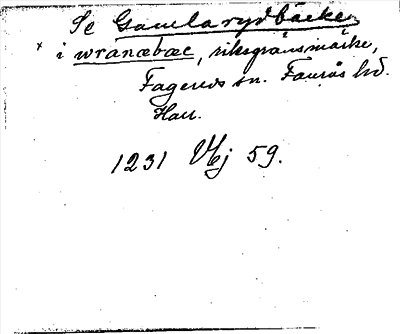 Se Gamlarydbäcken
× i wranæbæc, riksgränsmärke,
Fagereds sn. Faurås hd.
Hall.
1231 Vbj 59.